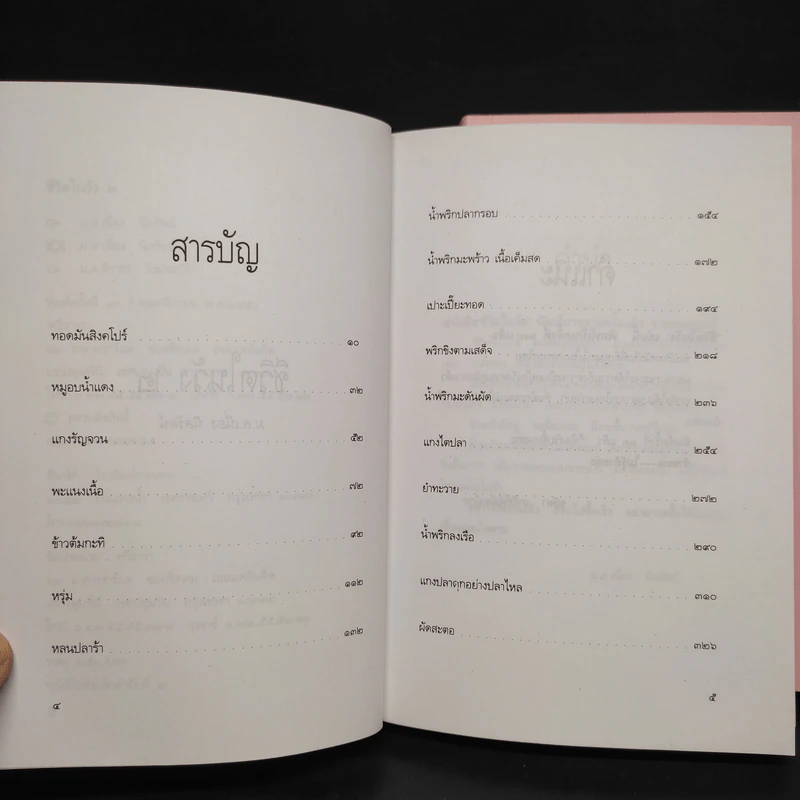 สารบัญ
ทอดมันสิงคโปร์ ๑๐
หมูอบน้ำแดง ๓๒
แกงรัญจวน ๕๒
พะแนงเนื้อ ๗๒
ข้าวต้มกะทิ ๙๒
หรุ่ม ๑๑๒
หลนปลาร้า ๑๓๒
๔
น้ำพริกปลากรอบ ๑๕๔
น้ำพริกมะพร้าว เนื้อเค็มสด ๑๗๒
เปาะเปี๊ยะทอด ๑๙๔
พริกขิงตามเสด็จ ๒๑๘
น้ำพริกมะดันผัด ๒๓๖
แกงไตปลา ๒๕๔
ยำทะวาย ๒๗๒
น้ำพริกลงเรือ ๒๙๐
แกงปลาดุกอย่างปลาไหล ๓๑๐
ผัดสะตอ ๓๒๖
๕
ชีวิตในวัง ๒
ม.ล.เนื่อง นิลรัตน์